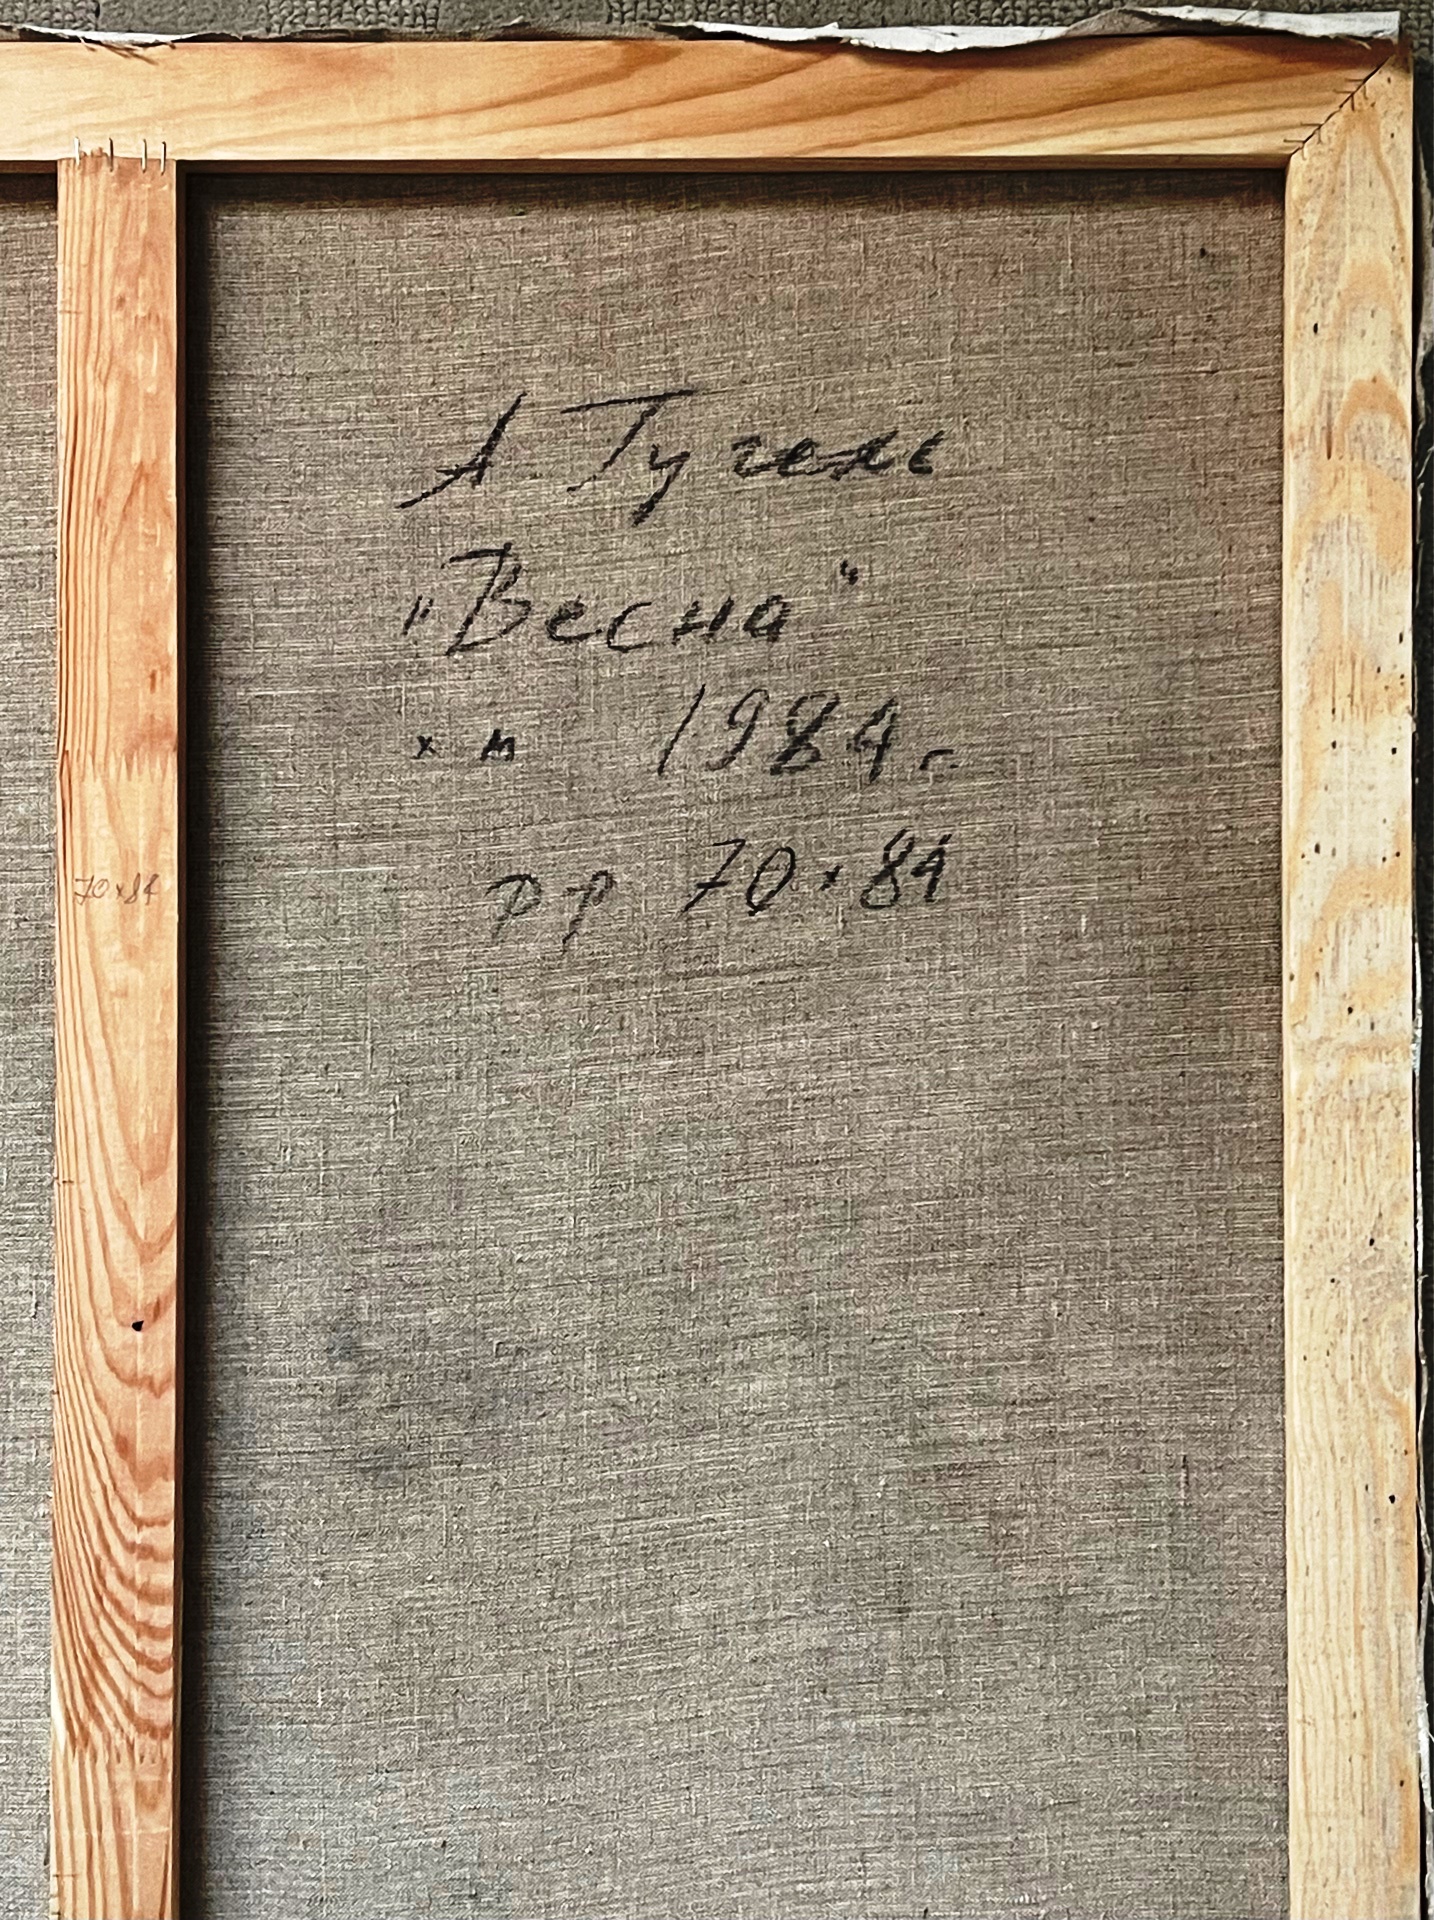 А Гугель
"Весна"
х м 1984 г.
р р 70 x 84
70 x 84